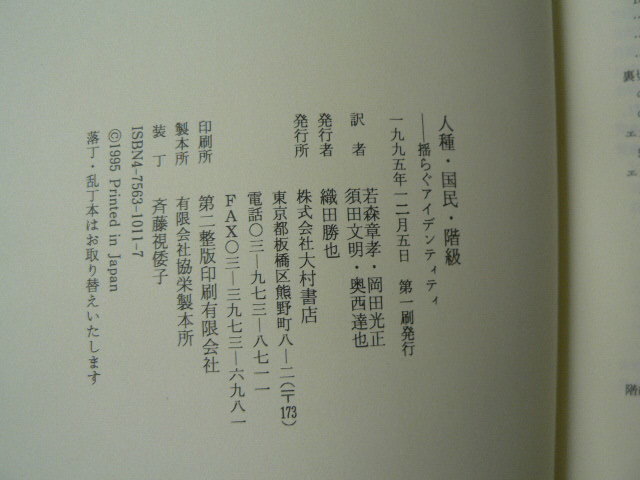 人種・国民・階級
――揺らぐアイデンティティ
一九九五年一二月五日　第一刷発行
訳　者　若森章孝・岡田光正
須田文明・奥西達也
発行者　織田勝也
発行所　株式会社大村書店
東京都板橋区熊野町八―二(〒173)
電話〇三―三九七三―八七一一
FAX〇三―三九七三―六九八一
印刷所　第二整版印刷有限会社
製本所　有限会社協栄製本所
装　丁　斉藤視倭子
ISBN4-7563-1011-7
©1995 Printed in Japan
落丁・乱丁本はお取り替えいたします